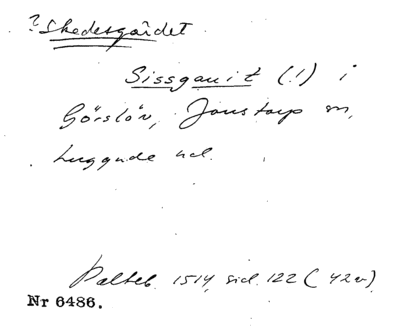 ? Skedesgårdet.
Sissgauit (!) i
Görslöv, Jonstorp sn,
Luggude hd.
Palteb. 1514, sid. 122 (42v)
Nr 6486.